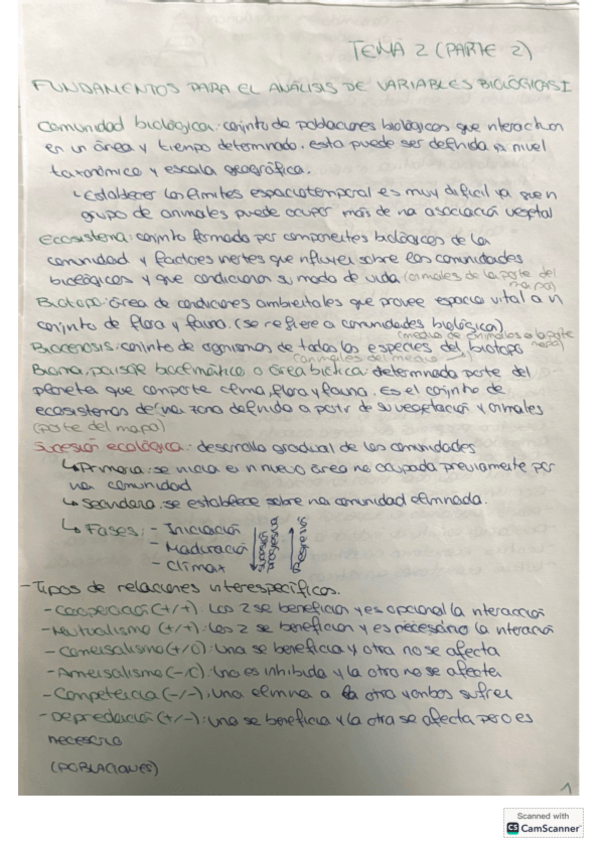 TEMA 2 (PARTE 2)
FUNDAMENTOS PARA EL ANÁLISIS DE VARIABLES BIOLÓGICAS I
Comunidad biológica: conjunto de poblaciones biológicas que interactuan
en un área y tiempo determinado. esta puede ser definida a nivel
taxonómico y escala geográfica.
↳ Establecer los límites espaciotemporal es muy dificil ya que un
grupo de animales puede ocupar más de una asociación vegetal
Ecosistema: conjunto formado por componentes biológicos de la
comunidad y factores inertes que influyen sobre las comunidades
biológicas y que condicionan su modo de vida (animales de la parte del
mapa)
Biotopo: área de condiciones ambientales que provee espacio vital a un
conjunto de flora y fauna. (se refiere a comunidades biológica)
(medio de animales a la parte
Biocenosis: conjunto de organismos de todas las especies del biotopo
(animales del medio →)
Bioma, paisaje bioclimático o área biótica: determinada parte del
planeta que comparte clima, flora y fauna. Es el conjunto de
ecosistemas de una zona definido a partir de su vegetación y animales
(parte del mapa)
Sucesión ecológica: desarrollo gradual de las comunidades
↳ Primaria: se inicia en nuevo área no ocupada previamente por
una comunidad
↳ Secundaria: se establece sobre una comunidad eliminada.
↳ Fases: - Iniciación
- Maduración
- Clímax
Sucesión progresiva
Regresión
- Tipos de relaciones interespecíficas.
- Cooperación (+/+): Las 2 se benefician y es opcional la interacción
- Mutualismo (+/+): Las 2 se benefician y es necesario la interacción
- Comensalismo (+/0): Una se beneficia y otra no se afecta
- Amensalismo (-/0): Una es inhibida y la otra no se afecta
- Competencia (-/-): Una elimina a la otra y ambos sufren
- Depredación (+/-): Una se beneficia y la otra se afecta pero es
necesario
(POBLACIONES)
1
Scanned with
CS CamScanner